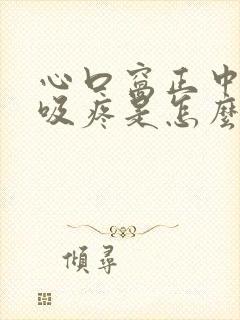 心口窩正中
吸疼是怎麼
傾尋